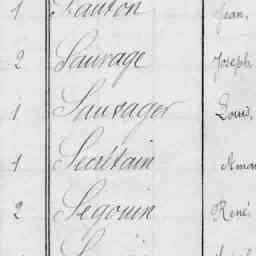 1 Santon Jean,
2 Sauvage Joseph
1 Sauvager Louis,
1 Secrétain Aman
2 Segouin René